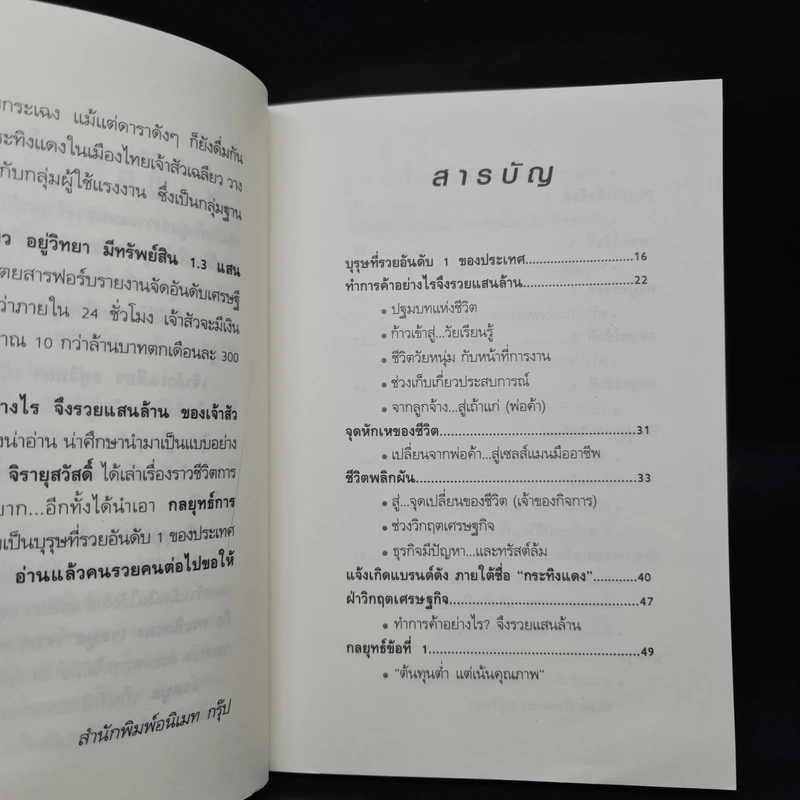 กระเฉง แม้แต่ดาราดังๆ ก็ยังดื่มกัน
ระทิงแดงในเมืองไทยเจ้าสัวเฉลียว วาง
กับกลุ่มผู้ใช้แรงงาน ซึ่งเป็นกลุ่มฐาน
อยู่วิทยา มีทรัพย์สิน 1.3 แสน
ตยสารฟอร์บรายงานจัดอันดับเศรษฐี
ว่าภายใน 24 ชั่วโมง เจ้าสัวจะมีเงิน
าณ 10 กว่าล้านบาทตกเดือนละ 300
างไร จึงรวยแสนล้าน ของเจ้าสัว
งน่าอ่าน น่าศึกษานำมาเป็นแบบอย่าง
จิรายุสวัสดิ์ ได้เล่าเรื่องราวชีวิตการ
าก...อีกทั้งได้นำเอา กลยุทธ์การ
เป็นบุรุษที่รวยอันดับ 1 ของประเทศ
อ่านแล้วคนรวยคนต่อไปขอให้
สำนักพิมพ์อนิเมท กรุ๊ป
สารบัญ
บุรุษที่รวยอันดับ 1 ของประเทศ....................16
ทำการค้าอย่างไรจึงรวยแสนล้าน....................22
• ปฐมบทแห่งชีวิต
• ก้าวเข้าสู่...วัยเรียนรู้
• ชีวิตวัยหนุ่ม กับหน้าที่การงาน
• ช่วงเก็บเกี่ยวประสบการณ์
• จากลูกจ้าง...สู่เถ้าแก่ (พ่อค้า)
จุดหักเหของชีวิต....................31
• เปลี่ยนจากพ่อค้า...สู่เซลส์แมนมืออาชีพ
ชีวิตพลิกผัน....................33
• สู่...จุดเปลี่ยนของชีวิต (เจ้าของกิจการ)
• ช่วงวิกฤตเศรษฐกิจ
• ธุรกิจมีปัญหา...และทรัสต์ล้ม
แจ้งเกิดแบรนด์ดัง ภายใต้ชื่อ "กระทิงแดง"..........40
ฝ่าวิกฤตเศรษฐกิจ....................47
• ทำการค้าอย่างไร? จึงรวยแสนล้าน
กลยุทธ์ข้อที่ 1....................49
• "ต้นทุนต่ำ แต่เน้นคุณภาพ"